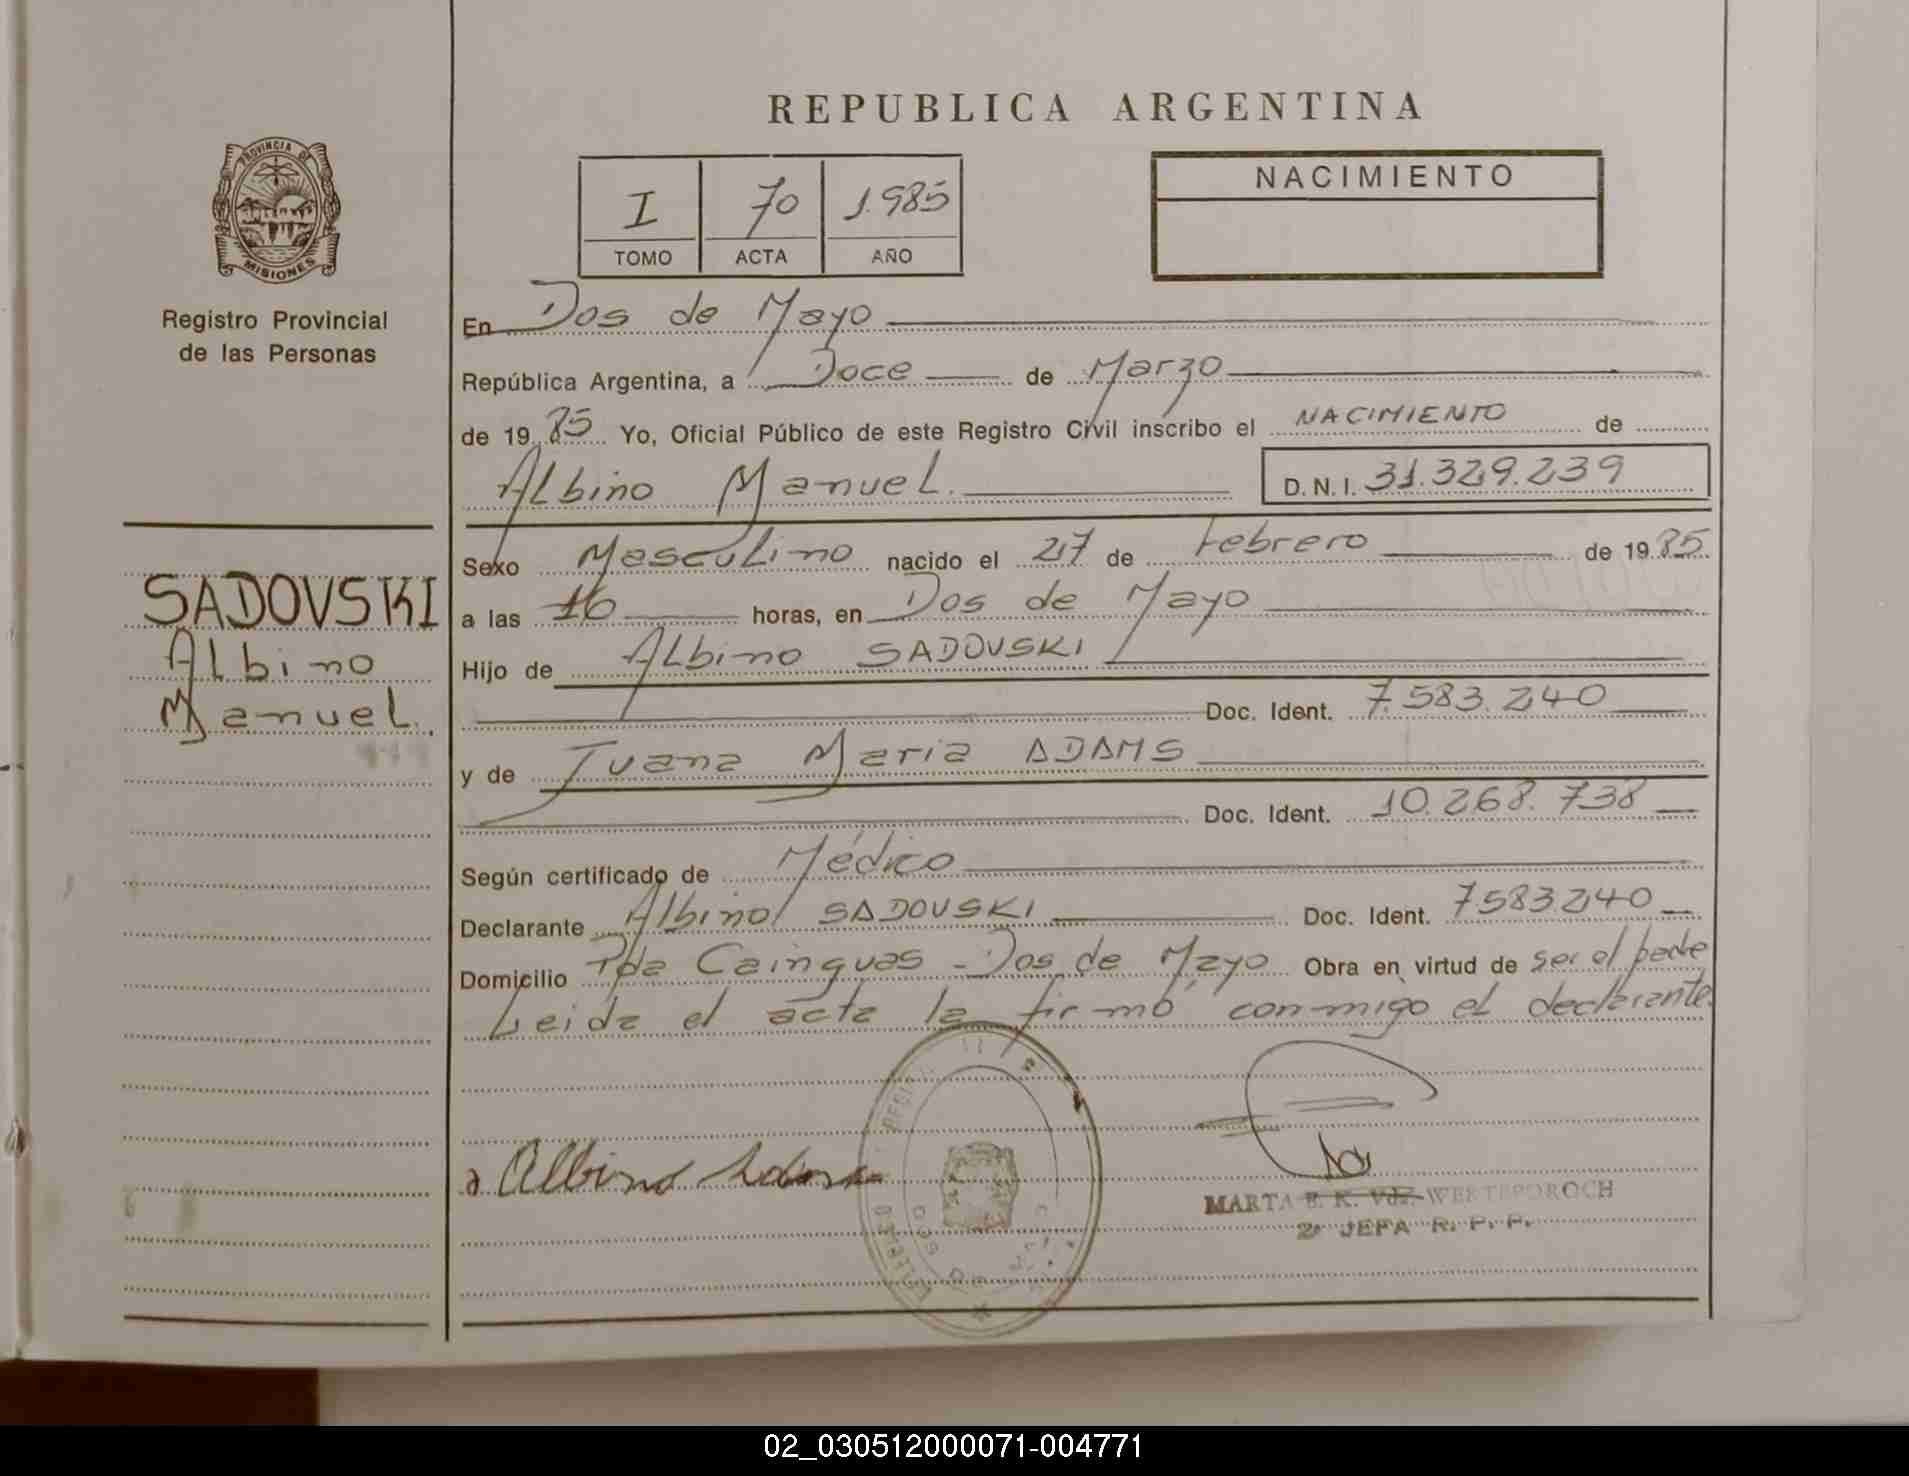 REPUBLICA ARGENTINA
PROVINCIA DE
MISIONES
Registro Provincial
de las Personas
I 70 1.985
TOMO ACTA AÑO
NACIMIENTO
En Dos de Mayo
República Argentina, a Doce de Marzo
de 19 85 Yo, Oficial Público de este Registro Civil inscribo el NACIMIENTO de
Albino Manuel. D.N.I. 31.329.239
SADOVSKI
Albino
Manuel.
Sexo Masculino nacido el 27 de Febrero de 19 85
a las 16 horas, en Dos de Mayo
Hijo de Albino SADOVSKI
Doc. Ident. 7.583.240
y de Juana Maria ADAMS
Doc. Ident. 10.268.738
Según certificado de Médico
Declarante Albino SADOVSKI Doc. Ident. 7583240
Domicilio Pda Cainguas - Dos de Mayo Obra en virtud de ser el padre
Leida el acta la firmó conmigo el declarante.
Albino
MARTA E. K. Vdz. WESTERPOROCH
2 JEFA R. P. P.
02_030512000071-004771